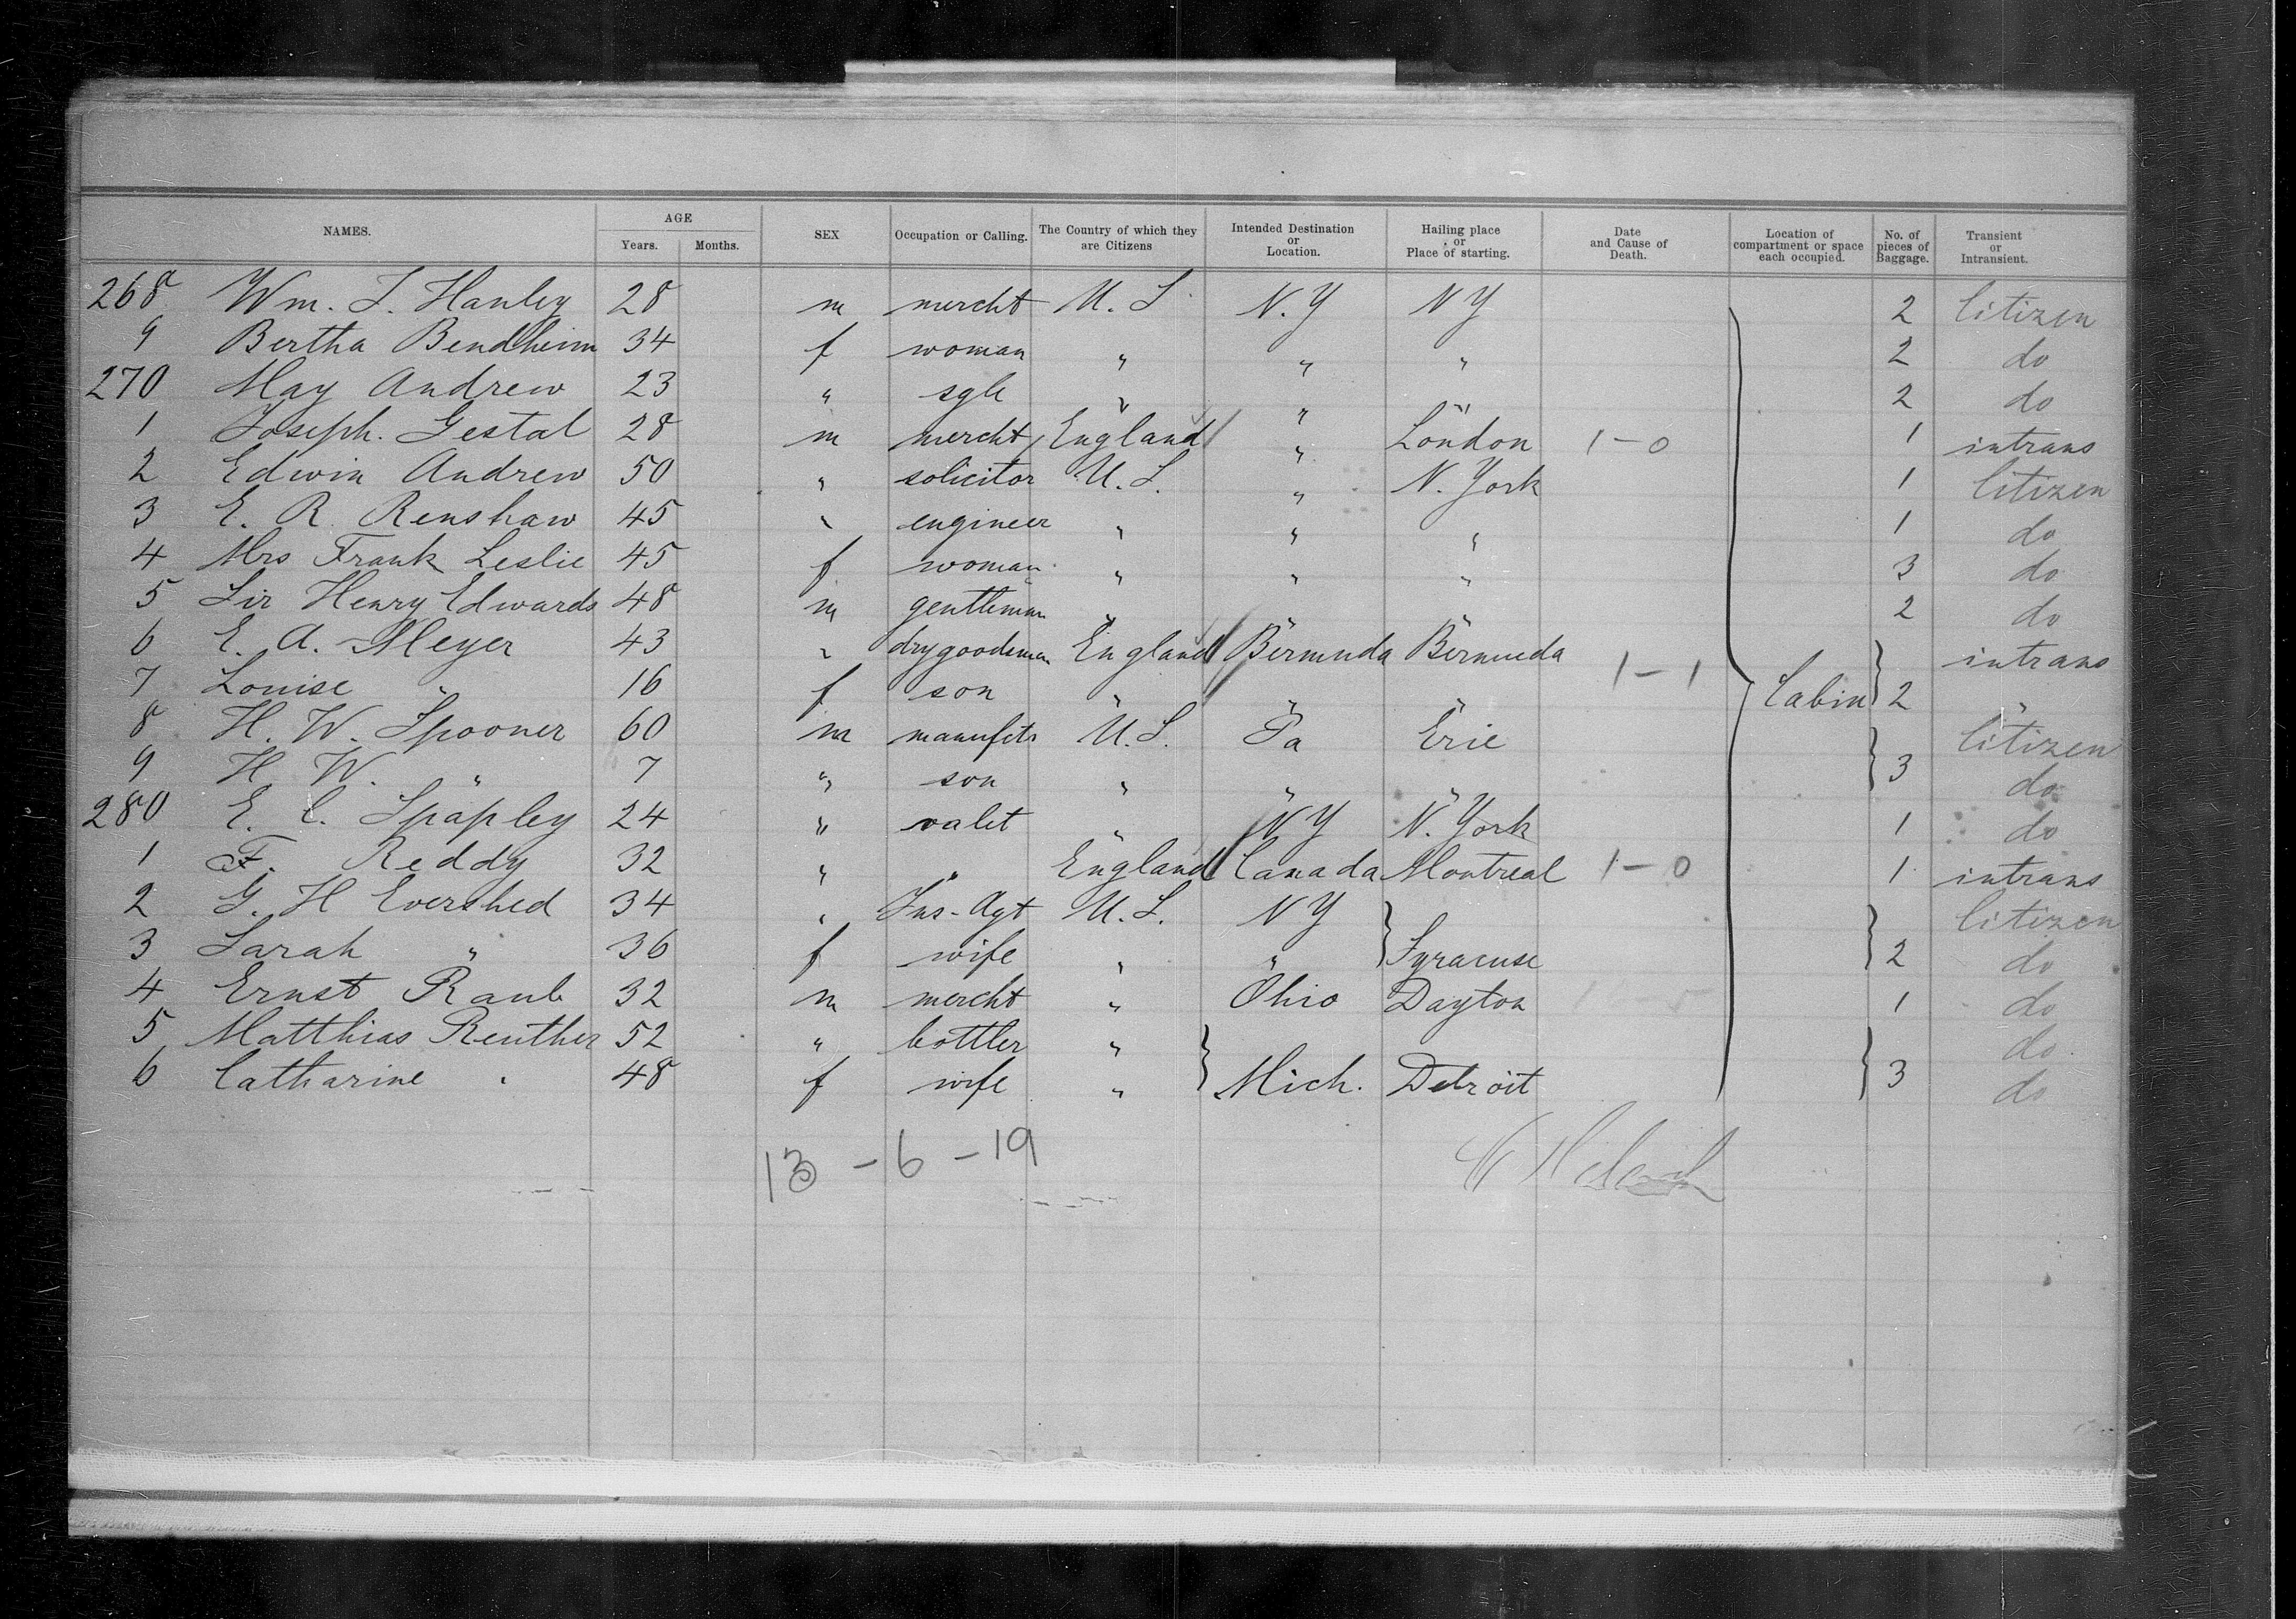 NAMES. AGE Years. Months. SEX Occupation or Calling. The Country of which they are Citizens Intended Destination or Location. Hailing place or Place of starting. Date and Cause of Death. Location of compartment or space each occupied. No. of pieces of Baggage. Transient or Intransient.
268 Wm. J. Hanley 28 m mercht U.S. N.Y NY 2 Citizen
9 Bertha Bendheim 34 f woman " " " 2 do
270 May Andrew 23 " sgle " " " 2 do
1 Joseph. Gestal 28 m mercht England " London 1-0 1 intrans
2 Edwin Andrew 50 " solicitor U.S. " N. York 1 Citizen
3 E. R. Renshaw 45 " engineer " " " 1 do
4 Mrs Frank Leslie 45 f woman " " " 3 do
5 Sir Henry Edwards 48 m gentleman " " " 2 do
6 E. A. Meyer 43 " drygoodsman England Bermuda Bermuda intrans
7 Louise " 16 f son " " " 1-1 Cabin 2 "
8 H. W. Spooner 60 m manufctr U.S. Pa Erie Citizen
9 H. W. " 7 " son " " " 3 do
280 E. C. Spapley 24 " valet " NY N. York 1 do
1 F. Reddy 32 " " England Canada Montreal 1-0 1 intrans
2 G. H Evershed 34 " Ins-Agt U.S. NY Citizen
3 Sarah " 36 f wife " " Syracuse 2 do
4 Ernst Raub 32 m mercht " Ohio Dayton 1 do
5 Matthias Reuther 52 " bottler " do
6 Catharine " 48 f wife " Mich. Detroit 3 do
13 - 6 - 19